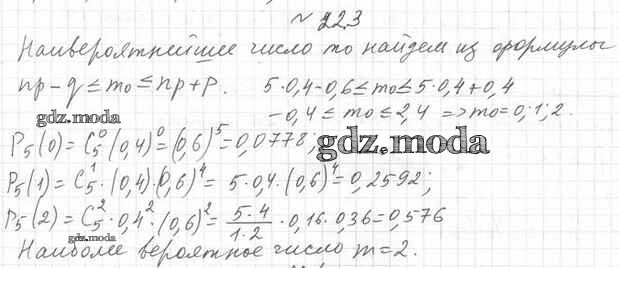 № 22.3
Наивероятнейшее число mо найдем из формулы
np-q≤m₀≤np+p. 5·0,4-0,6≤m₀≤5·0,4+0,4
-0,4≤m₀≤2,4 =>m₀=0;1;2.
gdz.moda
P₅(0)=C₅⁰(0,4)⁰=(0,6)⁵=0,0778;
gdz.moda
P₅(1)=C₅¹·(0,4)·(0,6)⁴= 5·0,4·(0,6)⁴=0,2592;
P₅(2)=C₅²·0,4²·(0,6)²=5·4/1·2·0,16·0,36=0,576
gdz.moda
Наиболее вероятное число m=2.